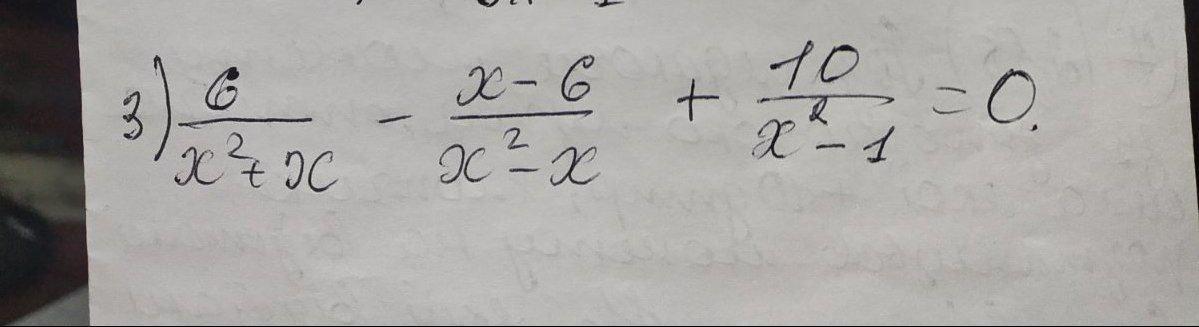 3) 6/(x²+x) - (x-6)/(x²-x) + 10/(x²-1) = 0.